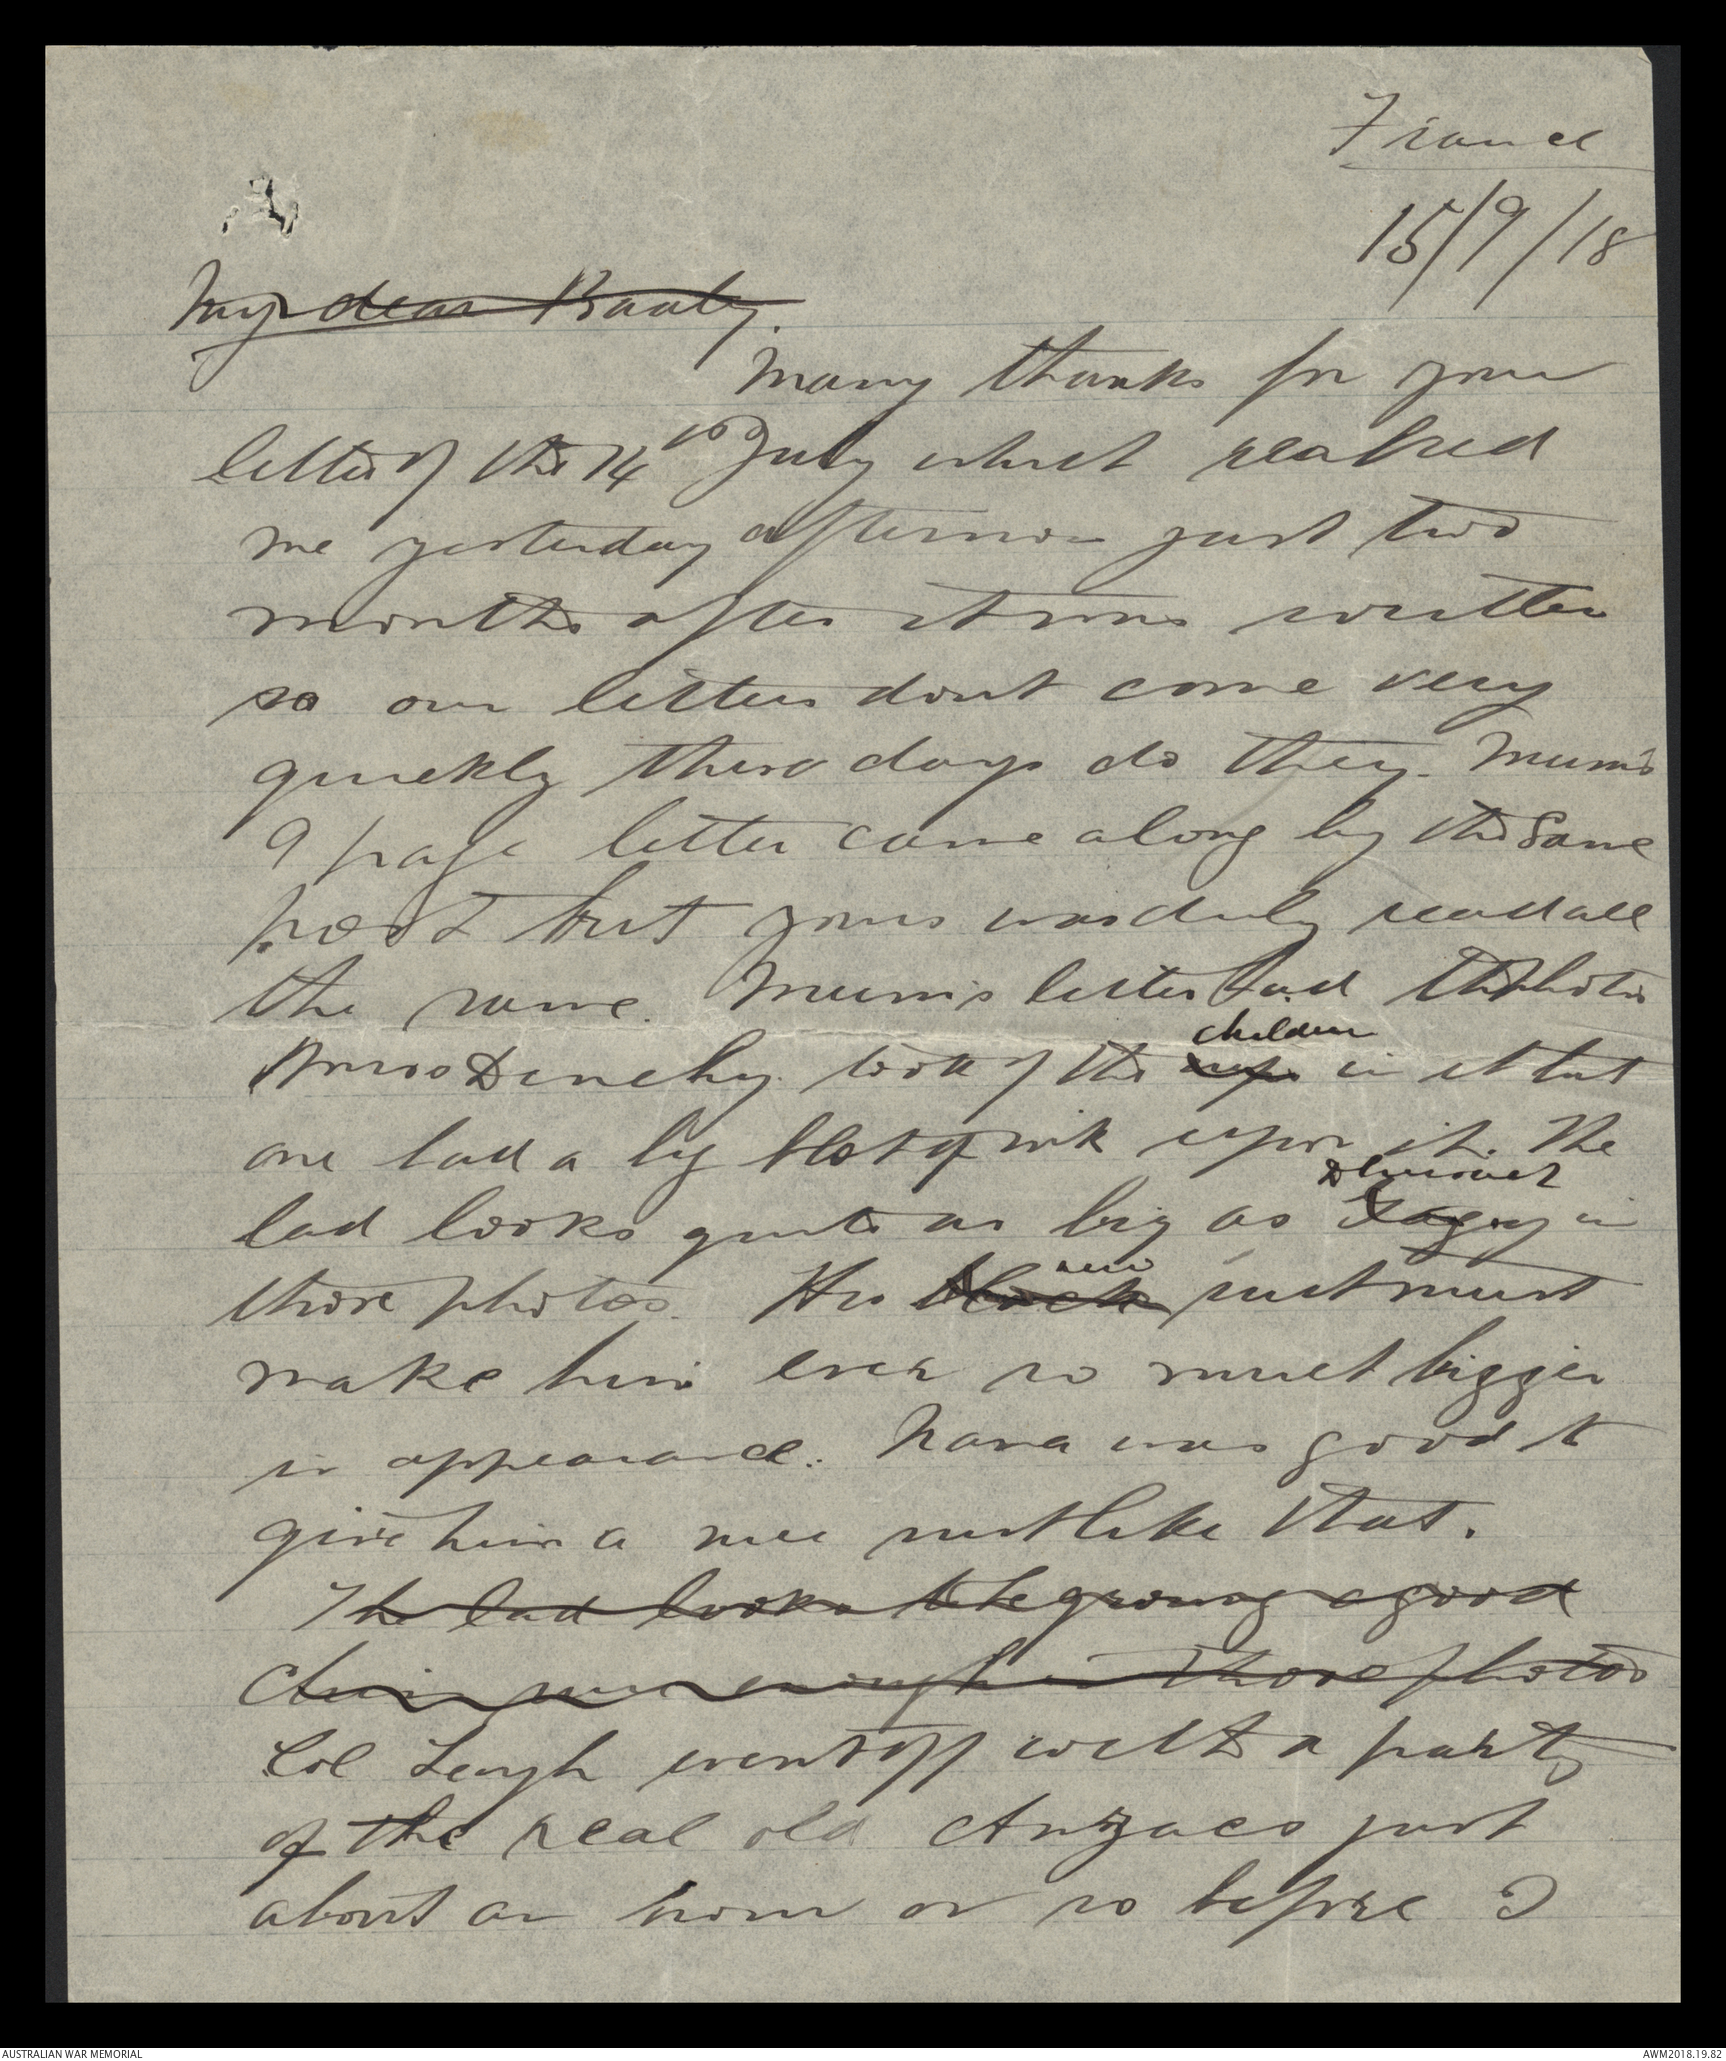 France
15/9/18
My dear Baaty.
Many thanks for your
letter of the 14th July which reached
me yesterday afternoon just two
months after it was written
so our letters dont come very
quickly these days do they. Mum's
9 page letter came along by the same
post but yours was duly read all
the same. Mum's letter had the photos
Miss Denehy took of the children in it but
one had a big blot of ink upon it. The
lad looks quite as big as
those photos. His black new suit must
make him ever so much bigger
in appearance. Nana was good to
give him a nice suit like that.
The lad looks to be growing a good
chin sure enough in those photos
Col Leagh went off with a party
of the real old Anzacs just
about an hour or so before I
AUSTRALIAN WAR MEMORIAL
AWM2018.19.82